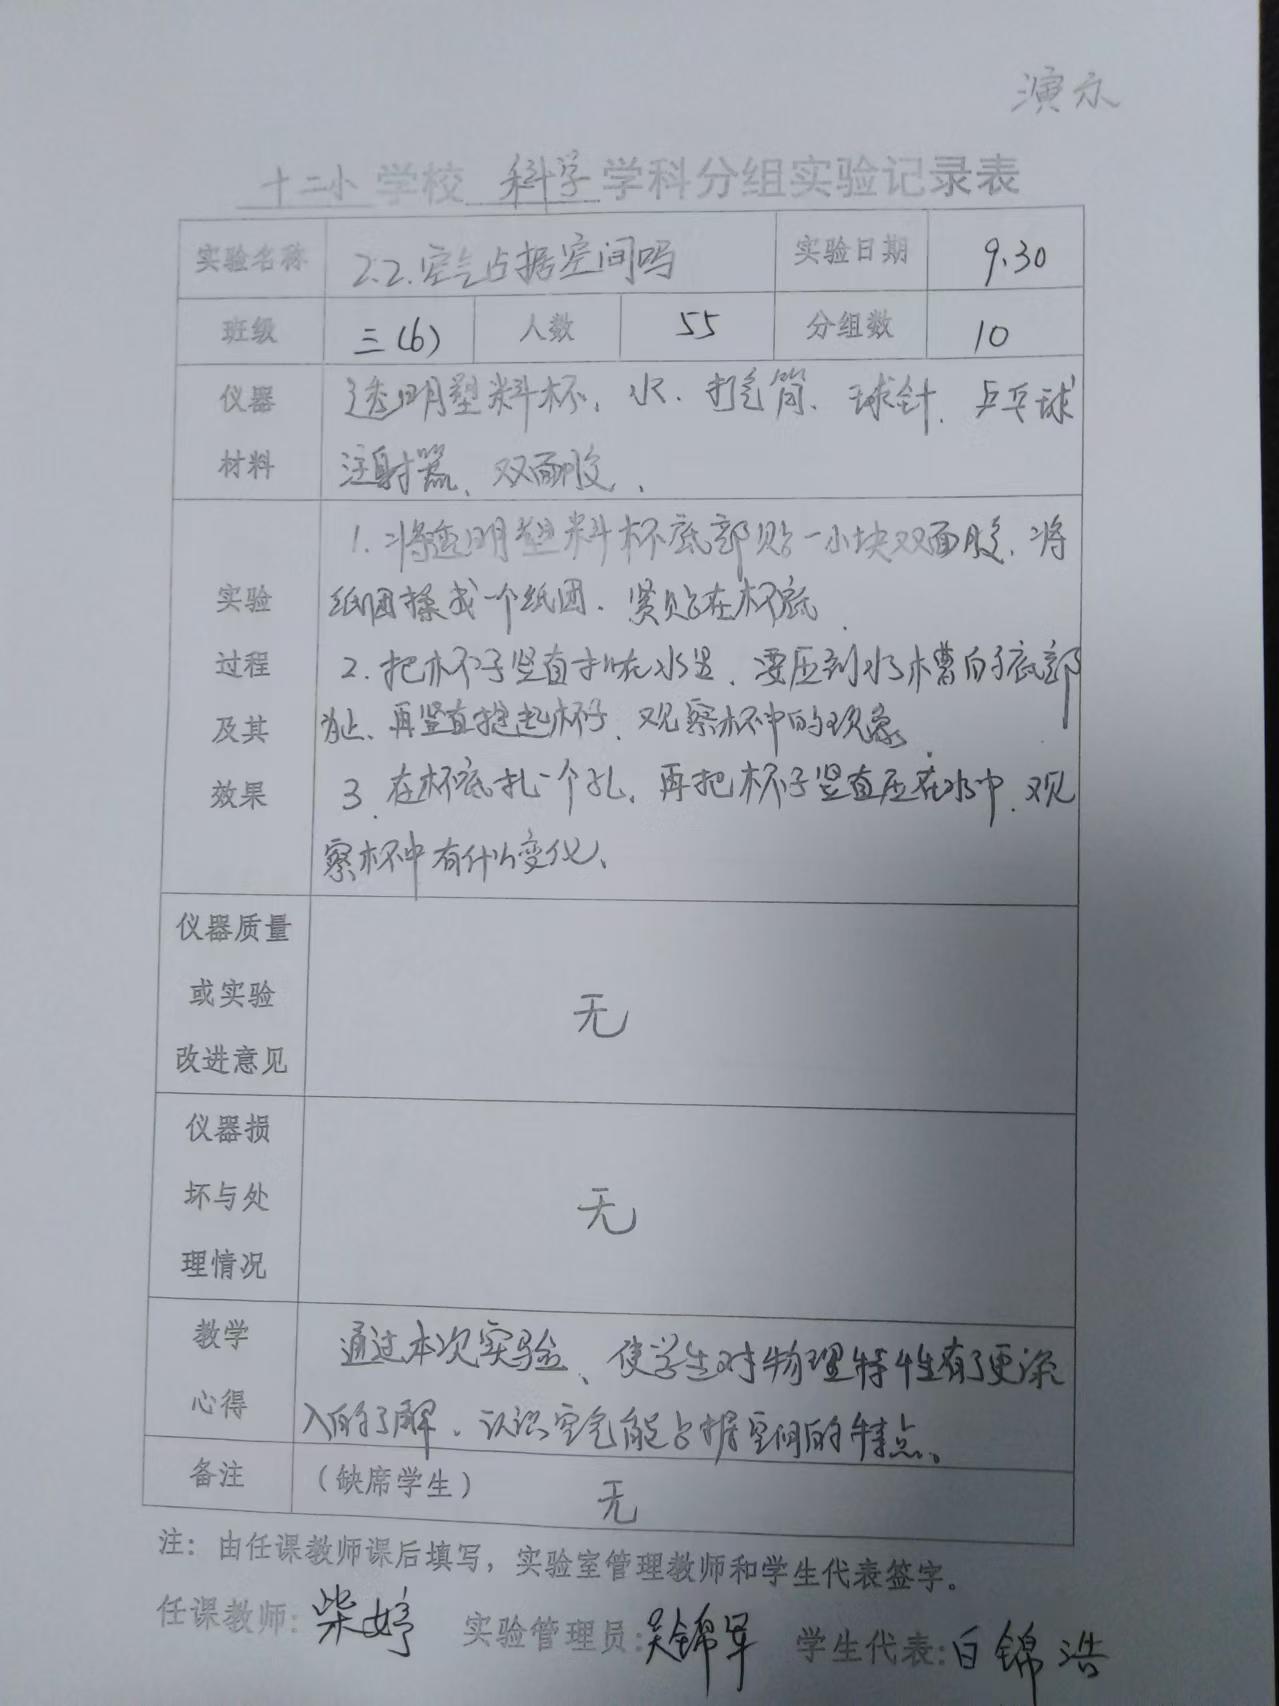 演示
十二小 学校 科学 学科分组实验记录表
实验名称 2.2.空气占据空间吗 实验日期 9.30
班级 三(6) 人数 55 分组数 10
仪器 透明塑料杯、水、打气筒、球针、乒乓球
材料 注射器、双面胶、
1.将透明塑料杯底部贴一小块双面胶、将
实验 纸团揉成一个纸团、紧贴在杯底.
过程 2.把杯子竖直扣在水里、要压到水槽的底部
及其 为止、再竖直提起杯子、观察杯中的现象.
效果 3.在杯底扎一个孔、再把杯子竖直压在水中、观
察杯中有什么变化、
仪器质量
或实验 无
改进意见
仪器损
坏与处 无
理情况
教学 通过本次实验、使学生对物理特性有了更深
心得 入的了解、认识空气能占据空间的特点、
备注 (缺席学生) 无
注：由任课教师课后填写，实验室管理教师和学生代表签字。
任课教师: 柴婷 实验管理员: 吴锦军 学生代表: 白锦浩